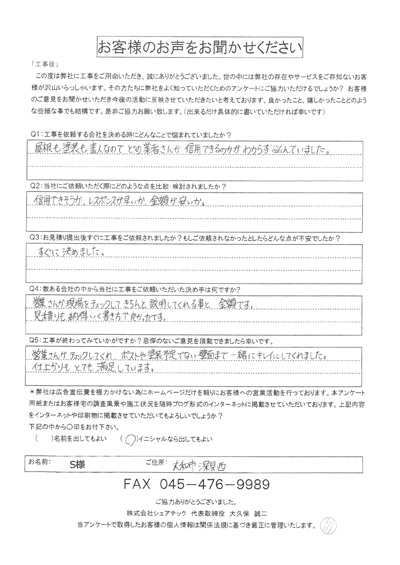 お客様のお声をお聞かせください
「工事後」
この度は弊社に工事をご用命いただき、誠にありがとうございました。世の中には弊社の存在やサービスをご存知ないお客
様が沢山いらっしゃいます。その方たちに弊社をよく知っていただくためのアンケートにご協力いただけるでしょうか？ お客様
のご意見をお聞かせいただき今後の活動に反映させていただきたいと考えております。良かったこと、嬉しかったことどのよう
な些細な事でも結構です。是非ご協力お願い致します。（出来るだけ具体的に書いていただければ幸いです）
Q1：工事を依頼する会社を決める時にどんなことで悩まれていましたか？
屋根も塗装も素人なので どの業者さんが信用できるのかがわからず悩んでいました。
Q2：当社にご依頼いただく際にどのような点を比較・検討されましたか？
信用できそうか、レスポンスが早いか、金額が安いか。
Q3：お見積り提出後すぐに工事をご依頼されましたか？もしご依頼されなかったとしたらどんな点が不安でしたか？
すぐに決めました。
Q4：数ある会社の中から当社に工事をご依頼いただいた決め手は何ですか？
営業さんが現場をチェックしてきちんと説明してくれる事と、金額です。
見積りも納得いく書き方でよかったです。
Q5：工事が終わってみていかがですか？忌憚のないご意見を頂戴できましたら幸いです。
営業さんがチェックしてくれ、ポストや塗装予定でない壁面まで一緒にキレイにしてくれました。
仕上がりも とても満足しています。
＊弊社は広告宣伝費を極力かけない為にホームページだけを頼りにお客様への営業活動を行っております。本アンケート
用紙またはお客様宅の調査風景や施工状況を随時ブログ形式のインターネットに掲載させていただいております。上記内容
をインターネットや印刷物に掲載させていただいてもよろしいでしょうか？
下記の中から○印をお付下さい。
（ ）名前を出してもよい （○）イニシャルなら出してもよい
お名前： S様 ご住所： 大和市 深見西
FAX 045-476-9989
ご協力ありがとうございました。
株式会社シェアテック 代表取締役 大久保 誠二
当アンケートで取得したお客様の個人情報は関係法規に基づき厳正に管理いたします。